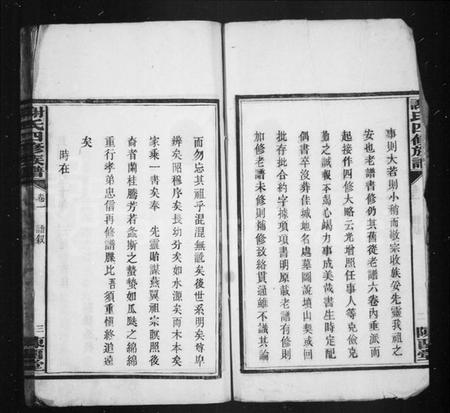 謝氏四修族譜
事則大若則小稍而敬宗收族妥先靈我祖之
安也老譜書修仍其舊從老譜六卷內垂派而
起接作四修大略云光增照任事人等克儉克
勤之誠報不馮心竭力事成美哉書生時定配
偶書卒沒葬佳城地名處墓圖說墳山契或回
批存批合約字據項項書明原載老譜有修則
加修老譜未修則補修致絡貫通雖不識其論
而勿忘其祖乎混混無說矣後世系明矣尊卑
辨矣昭穆序矣長幼分矣如水源矣而木本矣
家乘一書矣奉 先靈貽謀燕翼祖宗瞑照後
裔者蘭桂騰芳若螽斯之蟄蟄如瓜瓞之綿綿
重行孝弟忠信再修譜牒比吾須重愼終追遠
矣
時在
謝氏四修族譜
卷一
譜叙
三